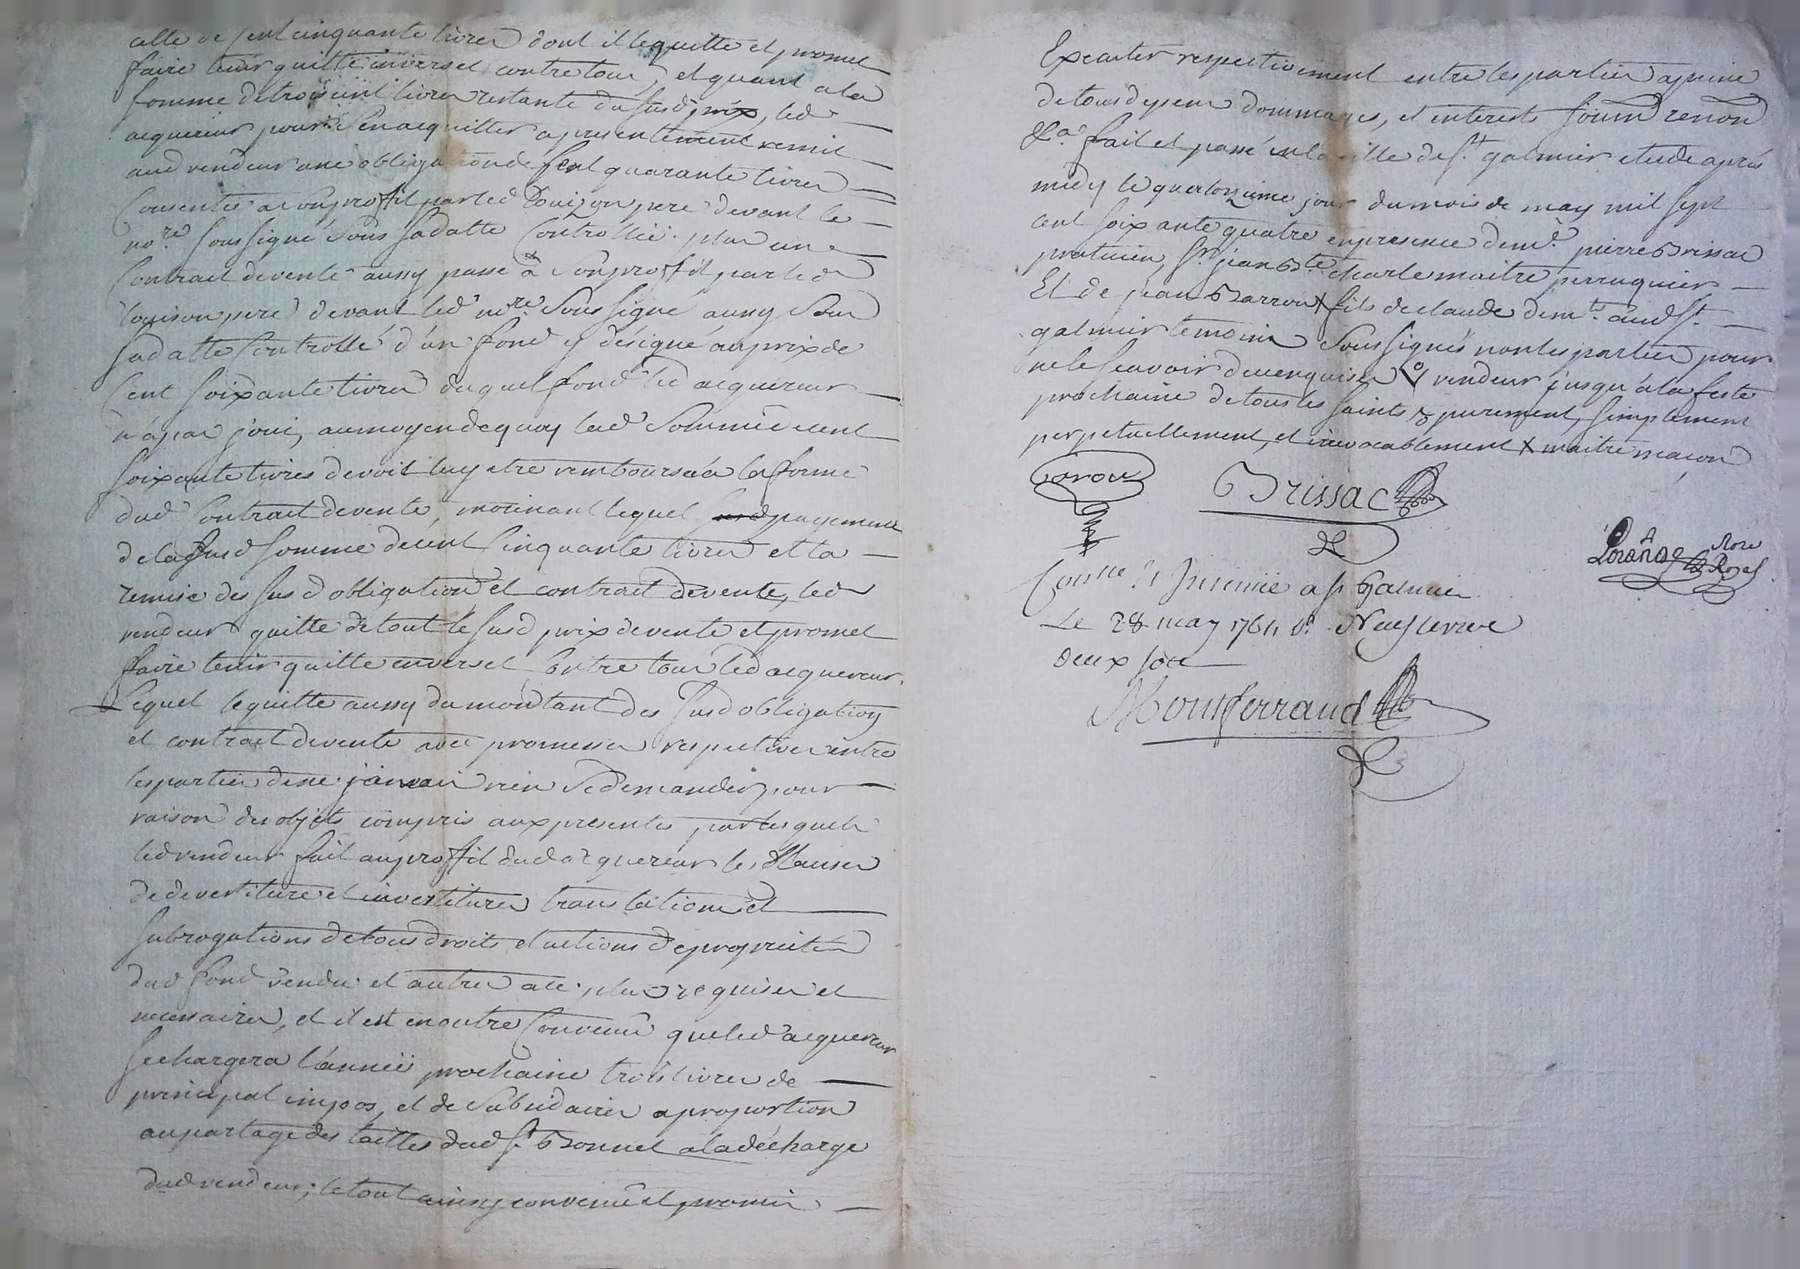 celle de cent cinquante livres dont il le quitte et promet
faire tenir quitte envers et contre tous, et quant a la
somme de trois cent livres restante du susd prix, led
acquereur pour s'en acquitter a presentement remit
aud vendeur une obligation de cent quarante livres
Consentie a son proffit par led Loüizon pere devant le
no.re soussigné sous sa datte Controllée. plus un
Contrait de vente aussy passé a son proffit par led
Loyison pere devant led no.re soussigné aussy sous
sa datte Controllé d'un fond y désigné au prix de
Cent soixante livres duquel fond led acquereur
n'a pas joui, au moyen de quoy lad somme de cent
soixante livres devoit luy etre remboursée a la forme
dud Contrait de vente, moienant lequel payement
de la susd somme de cent Cinquante livres et la
remise des susd obligation et contrait de vente, led
vendeur quitte de tout le susd prix de vente et promet
faire tenir quitte envers et Contre tous led acquereur.
Lequel le quitte aussy du montant des susd obligation
et contrait de vente avec promesses respectives entre
les parties de ne jamais rien se demander pour
raison des objets compris aux presentes, par lesquels
led vendeur fait au proffit dud acquereur les Clauses
de devestiture et investitures translations et
subrogations de tous droits et actions de proprietés
dud fond vendu et autres a ce. plus requises et
necessaires, et il est en outre Convenu que led acquereur
se chargera l'année prochaine trois livres de
principal impos, et de subsidaires a proportion
au partage des tailles dud St Bonnet a la décharge
dud vendeur; le tout ainsy convenu et promis
Executer respectivement entre les parties a peine
de tous depens dommages, et interests soum renon
&a. fait et passé en la ville de St. galmier etude aprés
midy le quatorzieme jour du mois de may mil sept
cent soixante quatre en presence de me. pierre Brissac
praticien, Sr jean Bte. Charle maitre perruquier
Et de jean Barrou x fils de claude demt. aud St.
galmier temoins soussignés non les parties pour
ne le scavoir de ce enquises vendeur jusqu'a la feste
prochaine de tous les saints purement, simplement
perpetuellement, et irrevocablement x maitre maçon
Barou
Brissac
Nore
Royal
Conlle & Insinué a St Galmier
Le 28 may 1764 R. Neuf livre
deux sols
Montferrand